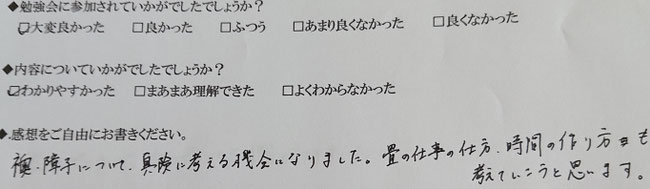 ◆勉強会に参加されていかがでしたでしょうか?
☑大変良かった □良かった □ふつう □あまり良くなかった □良くなかった
◆内容についていかがでしたでしょうか?
☑わかりやすかった □まあまあ理解できた □よくわからなかった
◆感想をご自由にお書きください。
襖、障子について、真険に考える機会になりました。畳の仕事の仕方、時間の作り方も
考えていこうと思います。